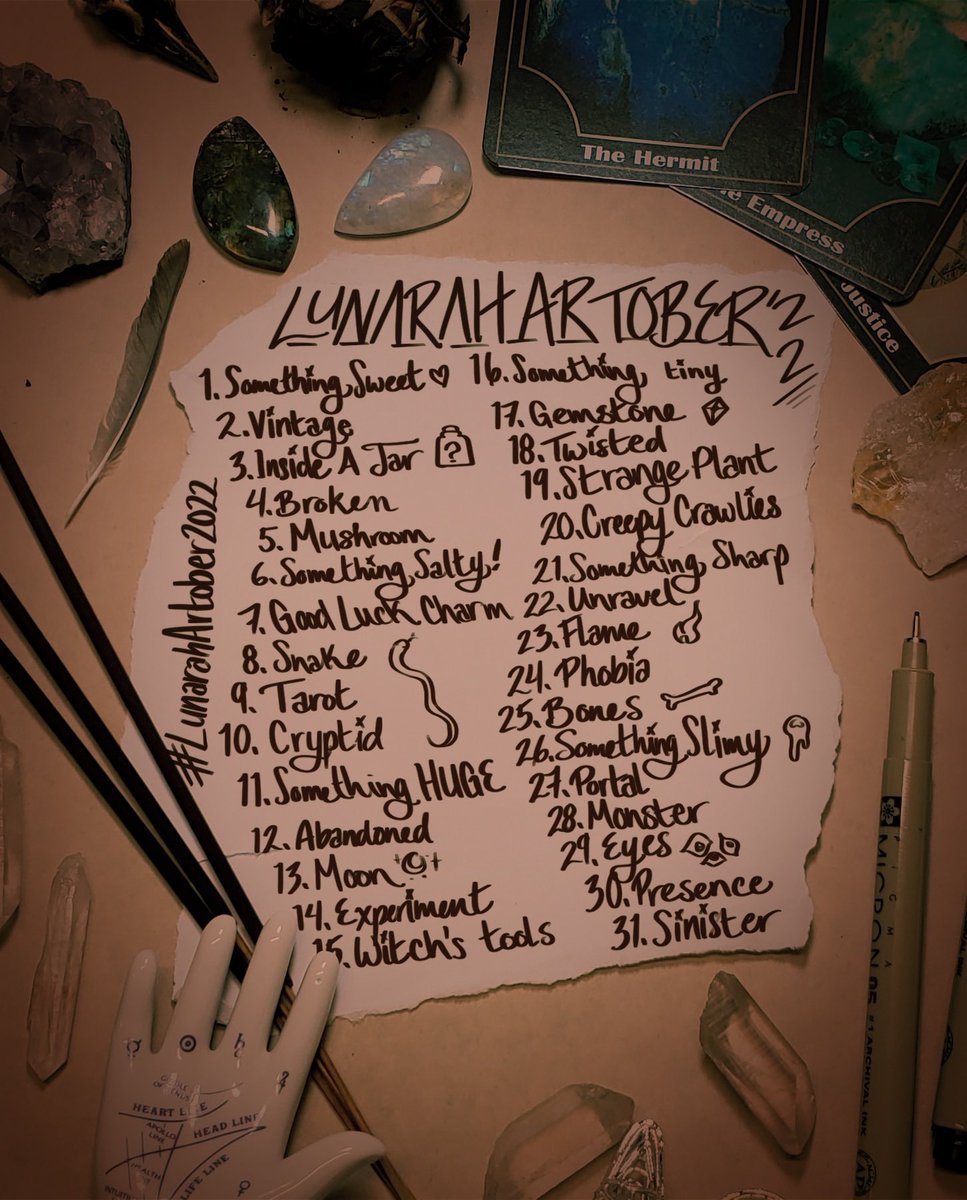 The Hermit
The Empress
Justice
LUNARAH ARTOBER '22
#LunarahArtober2022
1. Something Sweet
2. Vintage
3. Inside A Jar
?
4. Broken
5. Mushroom
6. Something Salty!
7. Good Luck Charm
8. Snake
9. Tarot
10. Cryptid
11. Something HUGE
12. Abandoned
13. Moon
14. Experiment
15. Witch's tools
16. Something tiny
17. Gemstone
18. Twisted
19. Strange Plant
20. Creepy Crawlies
21. Something Sharp
22. Unravel
23. Flame
24. Phobia
25. Bones
26. Something Slimy
27. Portal
28. Monster
29. Eyes
30. Presence
31. Sinister
PIGMA
MICRON 05
#1 ARCHIVAL INK
GIRDLE
OF VENUS
HEART LINE
APOLLO
LINE
HEAD LINE
HEALTH
LIFE LINE